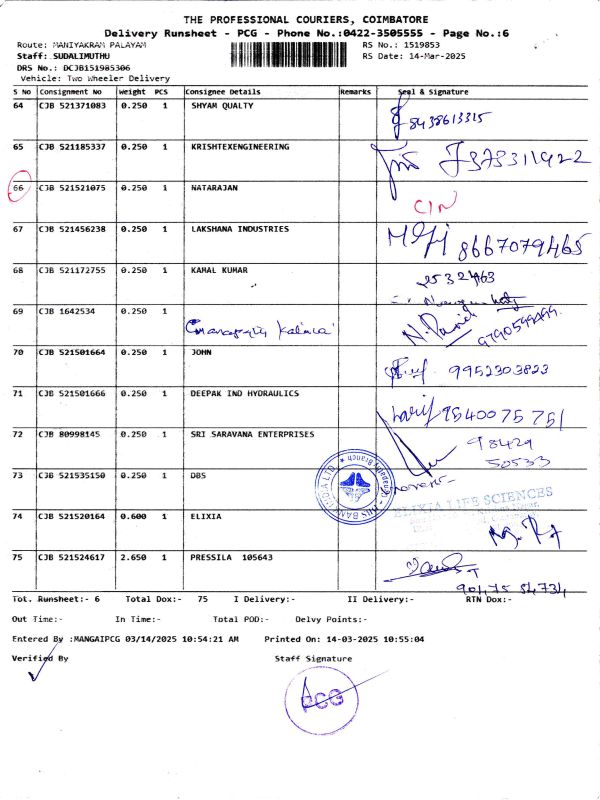 THE PROFESSIONAL COURIERS, COIMBATORE
Delivery Runsheet - PCG - Phone No.:0422-3505555 - Page No.:6
Route: MANIYAKRAM PALAYAM RS No.: 1519853
Staff: SUDALIMUTHU RS Date: 14-Mar-2025
DRS No.: DCJB151985306
Vehicle: Two Wheeler Delivery
S No Consignment No Weight PCS Consignee Details Remarks Seal & Signature
64 CJB 521371083 0.250 1 SHYAM QUALTY
8438613315
65 CJB 521185337 0.250 1 KRISHTEXENGINEERING
7373311922
66 CJB 521521075 0.250 1 NATARAJAN
CIN
67 CJB 521456238 0.250 1 LAKSHANA INDUSTRIES
8667079465
68 CJB 521172755 0.250 1 KAMAL KUMAR
25 32463
69 CJB 1642534 0.250 1
9790599499
70 CJB 521501664 0.250 1 JOHN
9952303823
71 CJB 521501666 0.250 1 DEEPAK IND HYDRAULICS
9540075751
72 CJB 80998145 0.250 1 SRI SARAVANA ENTERPRISES
98429
50533
73 CJB 521535150 0.250 1 DBS
74 CJB 521520164 0.600 1 ELIXIA
ELIXIA LIFE SCIENCES
75 CJB 521524617 2.650 1 PRESSILA 105643
Tot. Runsheet:- 6 Total Dox:- 75 I Delivery:- II Delivery:- RTN Dox:-
Out Time:- In Time:- Total POD:- Delvy Points:-
Entered By :MANGAIPCG 03/14/2025 10:54:21 AM Printed On: 14-03-2025 10:55:04
Verified By Staff Signature
PCG